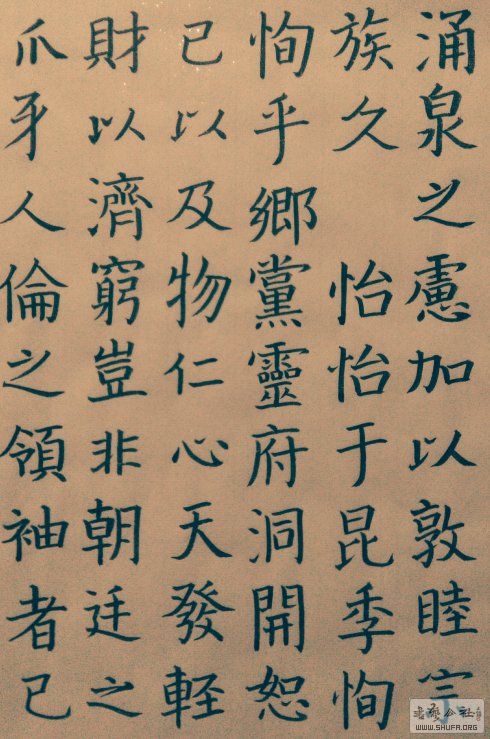 涌泉之慮加以敦睦宗
族久 怡怡于昆季恂
恂乎鄉黨靈府洞開恕
已以及物仁心天發輕
財以濟窮豈非朝廷之
爪牙人倫之領袖者已
WWW.SHUFA.ORG